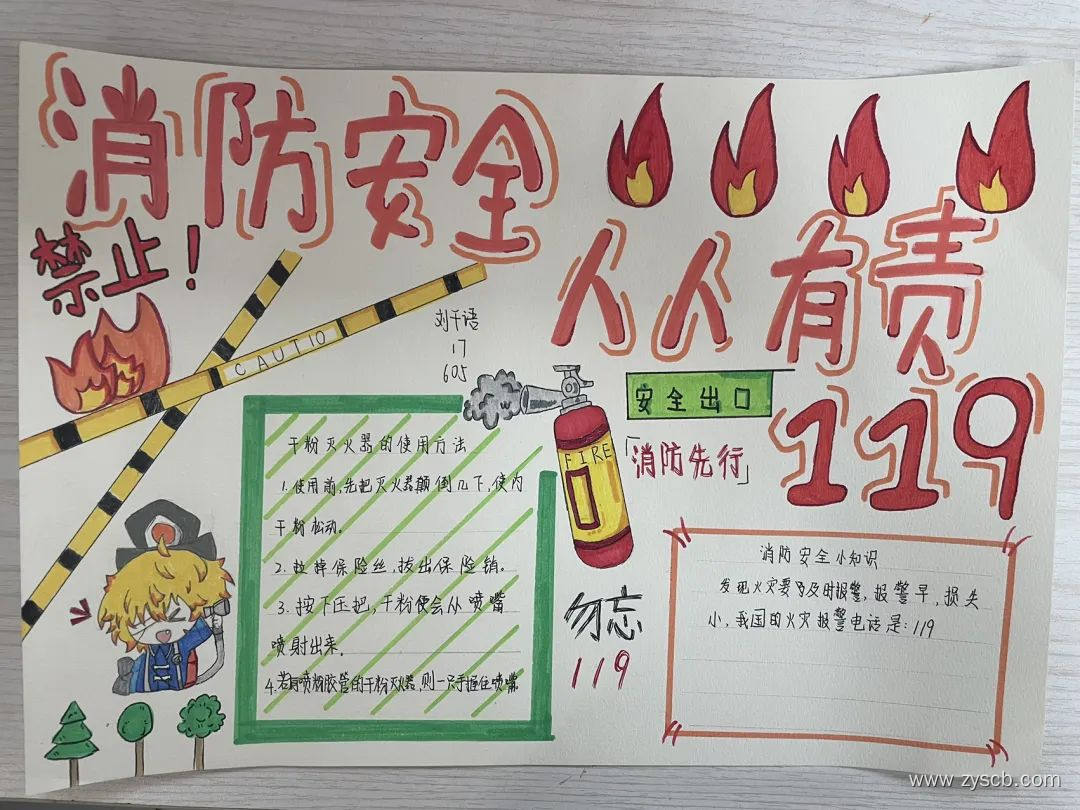 消防安全
人人有责
禁止!
CAUTIO
刘干语
17
605
安全出口
119
FIRE
「消防先行」
干粉灭火器的使用方法
1.使用前,先把灭火器颠倒几下,使内
干粉松动。
2.拉掉保险丝,拔出保险销。
3.按下压把,干粉便会从喷嘴
喷射出来。
4.若有喷粉胶管的干粉灭火器,则一只手握住喷嘴
勿忘
119
消防安全小知识
发现火灾要及时报警,报警早,损失
小,我国的火灾报警电话是:119
www.zyscb.com